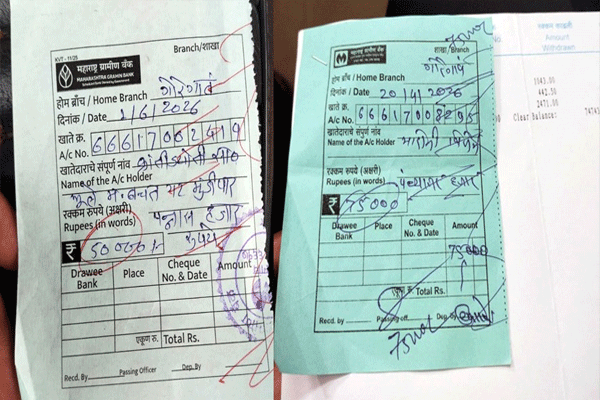 KVT - 11/25
महाराष्ट्र ग्रामीण बँक
MAHARASHTRA GRAMIN BANK
Branch/शाखा
होम ब्राँच / Home Branch गोरेगाव
दिनांक / Date 2/6/2026
खाते क्र.
A/c No. 66617002419
खातेदाराचे संपूर्ण नांव
Name of the A/c Holder
फुले म. बचत गट मुर्डीपार
रक्कम रुपये (अक्षरी)
Rupees (in words) पन्नास हजार
रुपये
₹ 50000/-
Drawee Bank Place Cheque No. & Date Amount
एकूण रु. Total Rs.
Recd. By Passing Officer Dep. By
महाराष्ट्र ग्रामीण बँक
MAHARASHTRA GRAMIN BANK
शाखा/Branch
होम ब्राँच / Home Branch गोरेगाव
दिनांक / Date 20/4/2026
खाते क्र.
A/c No. 66617008295
खातेदाराचे संपूर्ण नांव
Name of the A/c Holder
रक्कम रुपये (अक्षरी)
Rupees (in words) पंच्याहत्तर हजार
₹ 75000
Drawee Bank Place Cheque No. & Date Amount
75000
एकूण रु. Total Rs.
Recd. by Passing off. Dep. By
रक्कम काढली
Amount
Withdrawn
1043.00
442.50
2471.00
Clear Balance: 74743